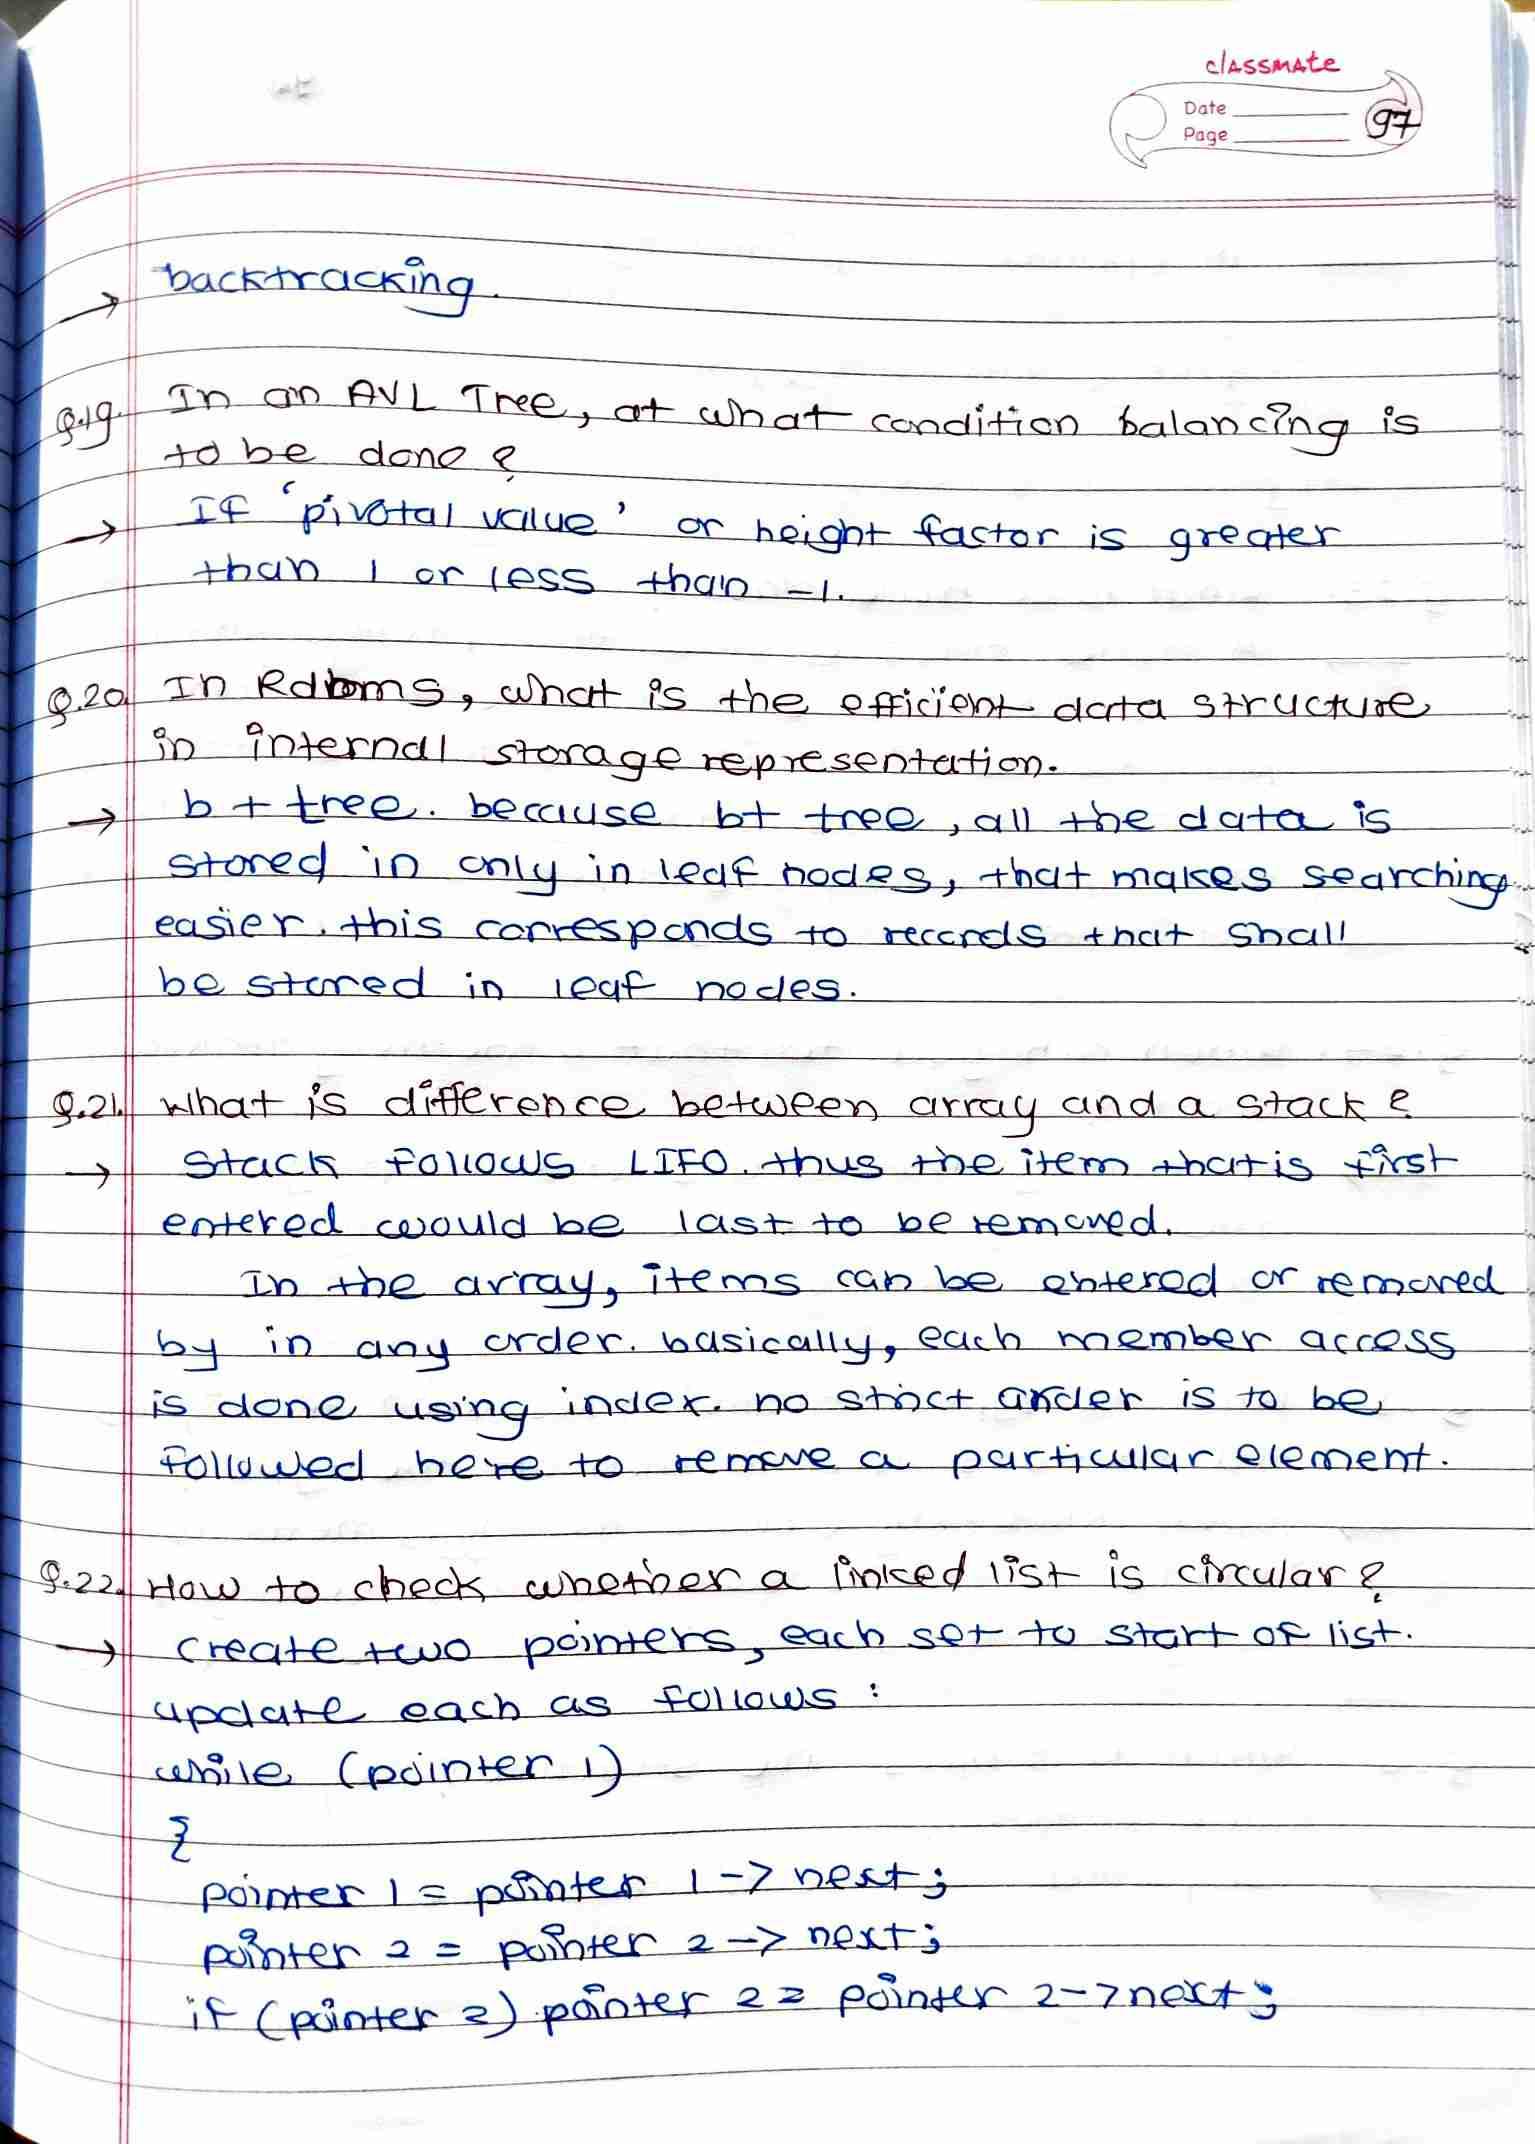 classmate
Date
Page
97
→ backtracking.
Q.19. In an AVL Tree, at what condition balancing is
to be done?
→ If 'pivotal value' or height factor is greater
than 1 or less than -1.
Q.20. In Rdbms, what is the efficient data structure
in internal storage representation.
→ b + tree. because b+ tree, all the data is
stored in only in leaf nodes, that makes searching
easier. this corresponds to records that shall
be stored in leaf nodes.
Q.21. What is difference between array and a stack?
→ Stack follows LIFO. thus the item that is first
entered would be last to be removed.
In the array, items can be entered or removed
by in any order. basically, each member access
is done using index. no strict order is to be
followed here to remove a particular element.
Q.22. How to check whether a linked list is circular?
→ create two pointers, each set to start of list.
update each as follows:
while (pointer 1)
{
pointer 1 = pointer 1 -> next;
pointer 2 = pointer 2 -> next;
if (pointer 2) pointer 2 = pointer 2 -> next;